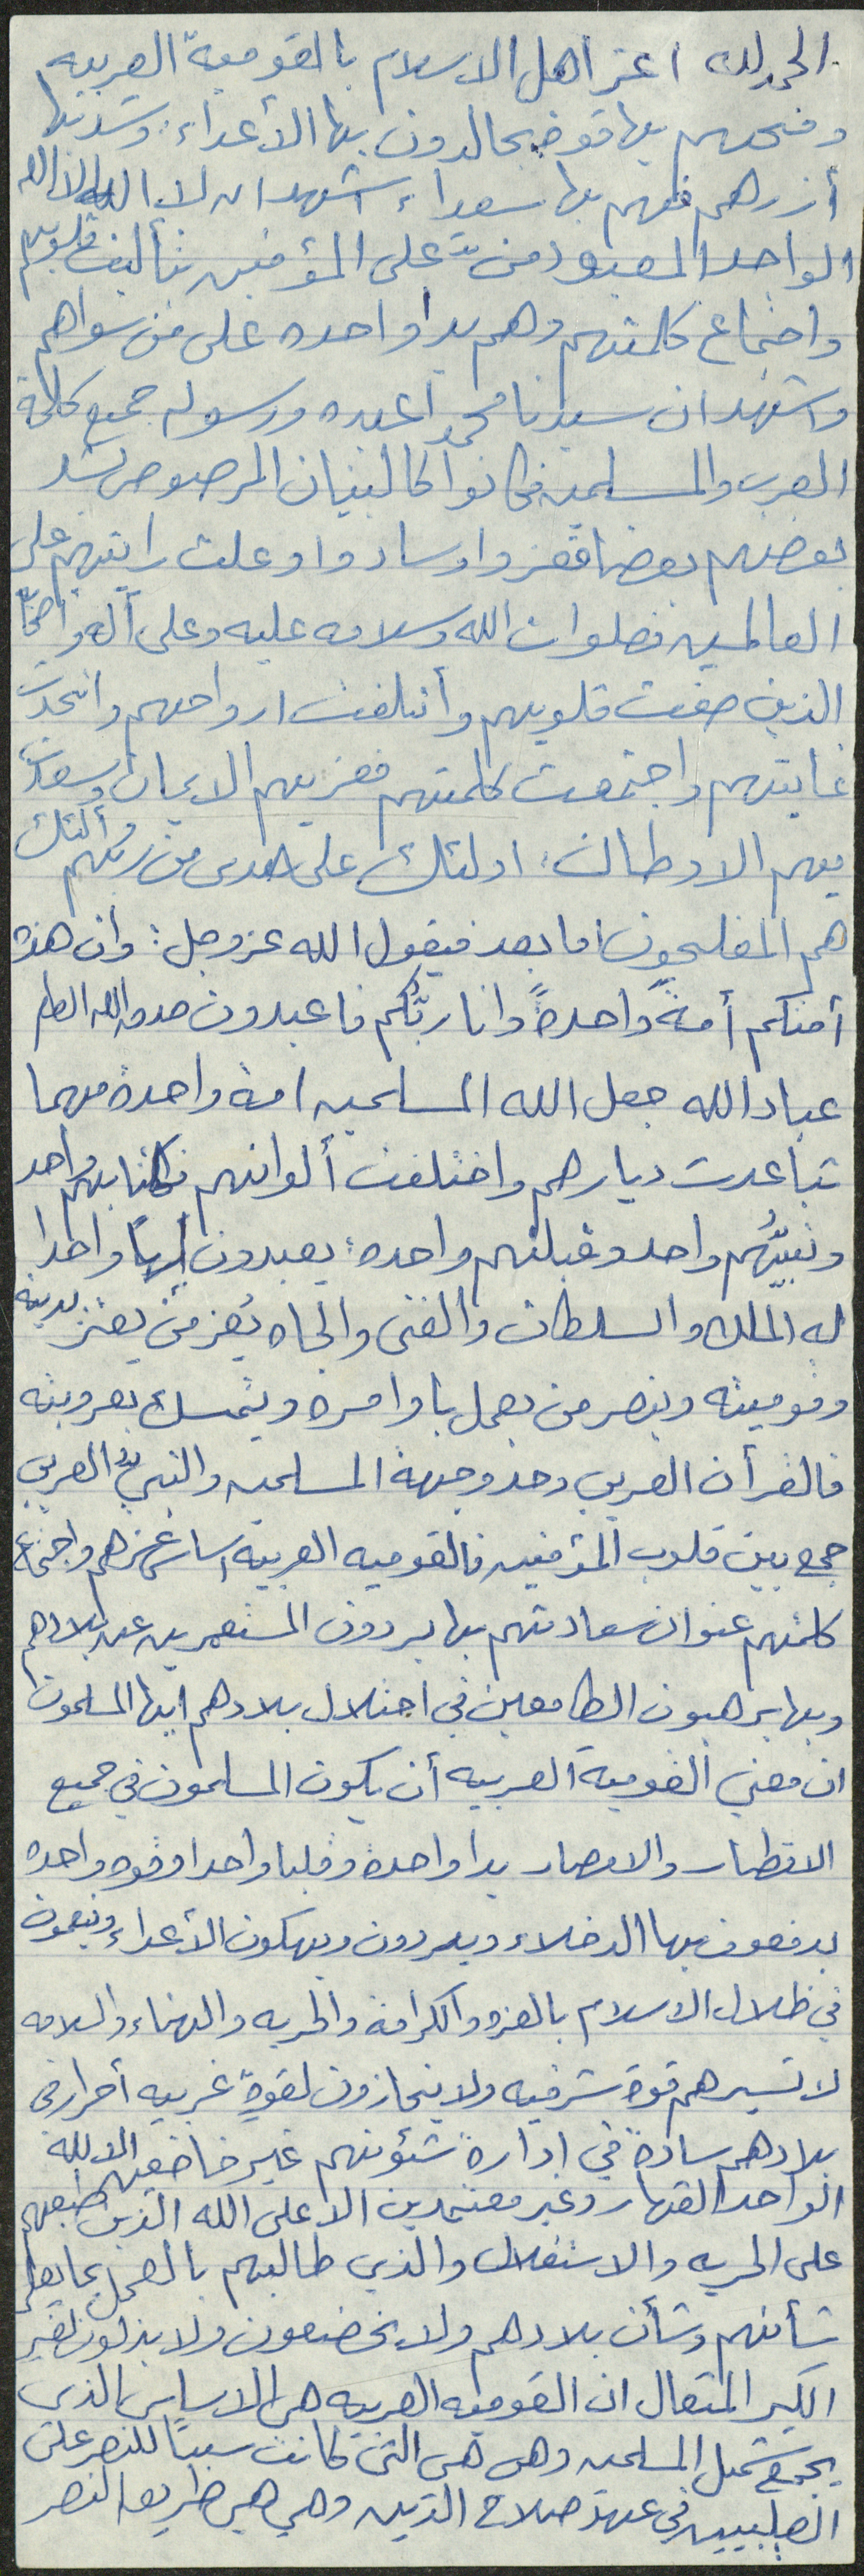 الحمد لله اعز اهل الاسلام بالقومية العربيه
ومنحهم بها قوة يجالدون بها الأعداء، وشد بها
أزرهم فهم بها سعداء، اشهد ان لا اله الا الله
الواحد المعبود منّ على المؤمنين بتأليف قلوبهم
واجتماع كلمتهم وهم يدا واحده على من سواهم
واشهد ان سيدنا محمدا عبده ورسوله جمع كلمة
العرب والمسلمين فكانوا كالبنيان المرصوص يشد
بعضهم بعضا فعزوا وسادوا وعلت رايتهم على
العالمين فصلوات الله وسلامه عليه وعلى آله واصحابه
الذين صفت قلوبهم وأتلفت ارواحهم واتحدت
غايتهم واجتمعت كلمتهم فعز بهم الايمان وسعدت
بهم الاوطان، اولئك على هدى من ربهم وألئك
هم المفلحون اما بعد فيقول الله عز وجل: وان هذه
أمتكم أمةً واحدةً وانا ربُّكم فاعبدون صدق الله العظيم
عباد الله جعل الله المسلمين امة واحدة مهما
تباعدت ديارهم واختلفت ألوانهم فكتابهم واحد
ونبيُّهم واحد وقبلتهم واحده، يعبدون إلهاً واحدا
له الملك والسلطان والغنى والجاه يُعز من يعتز بدينه
وقوميته وينصر من يعمل باوامره ويتمسك بعروبته
فالقرآن العربي وحد وجهة المسلمين والنبيُّ العربي
جمع بين قلوب المؤمنين فالقوميه العربية اساس عزهم واجتماع
كلمتهم عنوان سعادتهم بها يردون المستعمرين عن بلادهم
وبها يرهبون الطامعين في احتلال بلادهم ايها المسلمون
ان معنى القومية العربيه أن يكون المسلمون في جميع
الاقطار والامصار يدا واحدة وقلبا واحدا وقوه واحده
يدفعون بها الدخلاء ويردون ويهلكون الأعداء وينعمون
في ظلال الاسلام بالعزه والكرامة والحريه والهناء والسلامه
لا تسيرهم قوة شرقيه ولا ينحازون لقوةٍ غربيه أحرار في
بلادهم سادة في إدارة شئونهم غير خاضعين الا لله
الواحد القهار وغير معتمدين الا على الله الذى طبعهم
على الحريه والاستقلال والذي طالبهم بالعمل بما يعلى
شأنهم وشأن بلادهم ولا يخضعون ولا يذلون لغير
الكبير المتعال ان القوميه العربيه هى الاساس الذى
يجمع شمل المسلمين وهى هى التى كانت سبباً للنصر على
الصلبيين في عهد صلاح الدين وهي هي طريق النصر